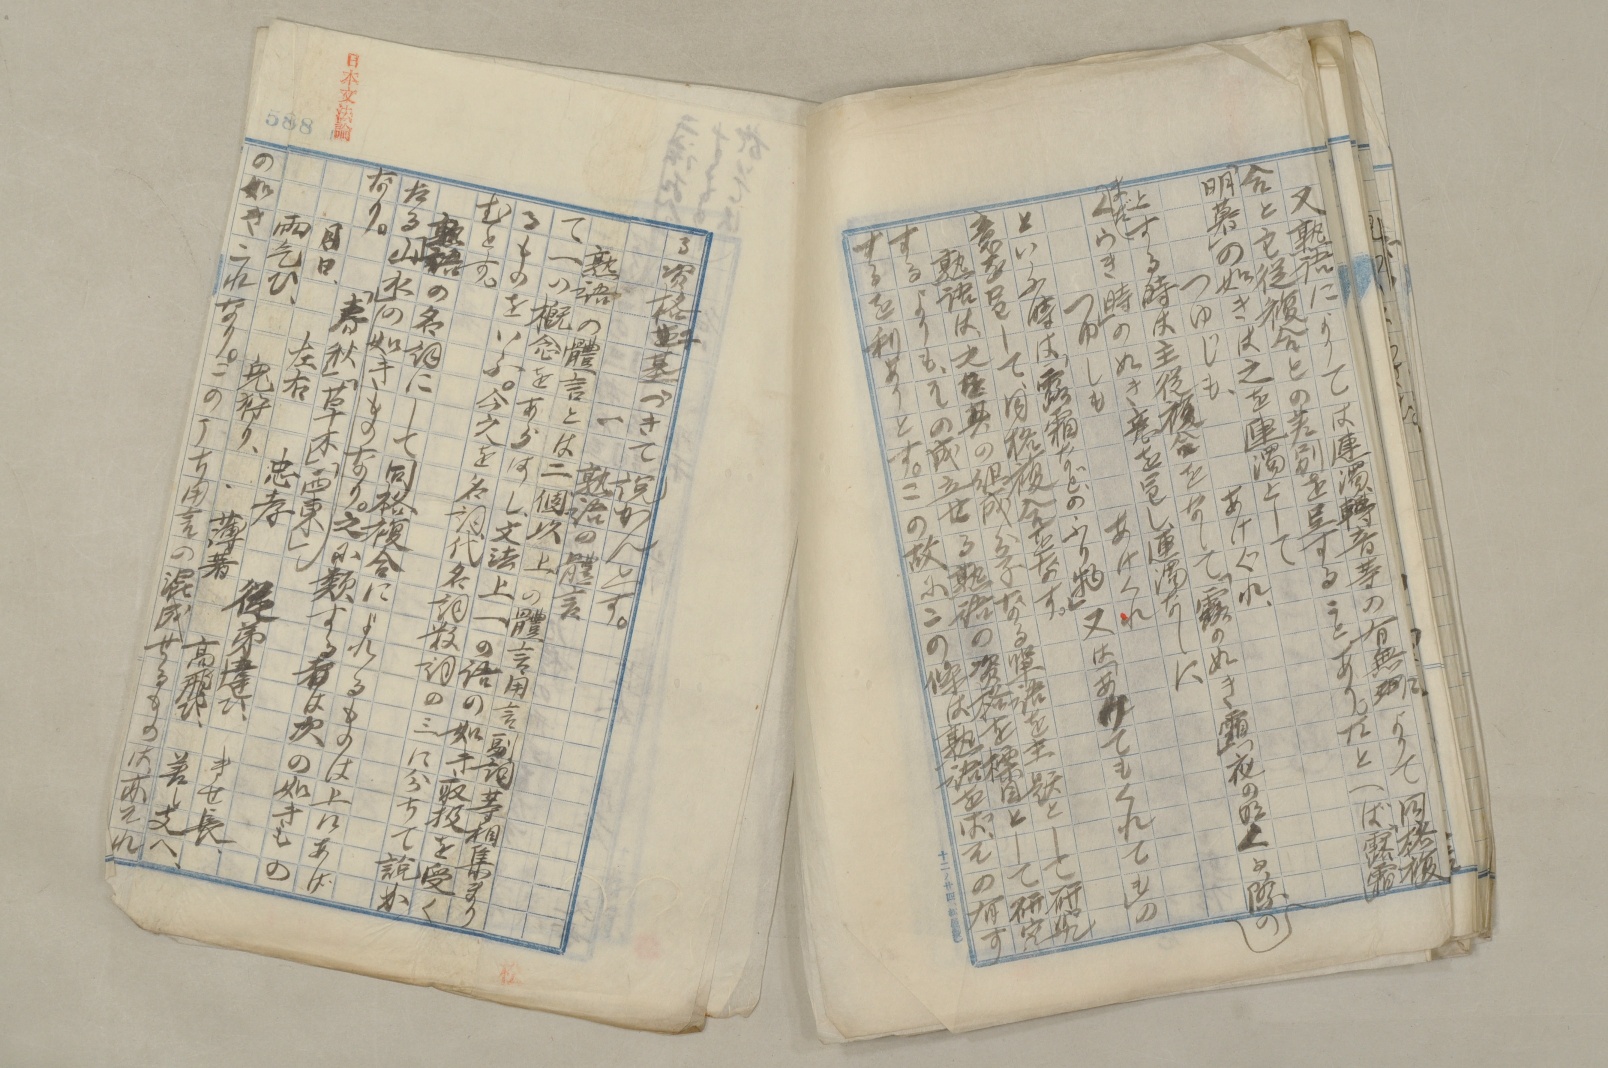 又熟語によりては連濁轉音等の有無によりて同格複
合と主從複合との差別を呈することあり。たとへば「露霜」
「明暮」の如きは之を連濁として
つゆじも、 あけぐれ、
とする時は主從複合をなして「露のぬき霜」「夜の明くる際の
まだくらき時」の如き意を呈し連濁なしに
つゆしも あけくれ
といふ時は「露霜などのふり物」又は「あけてもくれてもの
意を呈して、同格複合をなす。
熟語は之を其の組成分子なる單語を主題として研究
するよりも、その成立せる熟語の資格を標目として研究
するを利ありとす。この故にこの條は熟語を其の有す
る資格に基づきて説かんとす。
一 熟語の體言
熟語の體言とは二個以上の體言用言副詞等相集まり
て一の概念をあらはし、文法上一の語の如き取扱を受く
るものをいふ。今之を名詞代名詞數詞の三に分ちて説か
むとす。
熟語の名詞にして同格複合によれるものは上にあげ
たる「山水」の如きものなり。之に類する者は次の如きもの
なり。「春秋」「草木」「西東」
月日、 左右 忠孝 從弟達、 きせ長、
雨乞ひ、 兎狩り、 薄著 高飛び、 着支へ、
の如きこれなり。このうち用言の混成せるものは亦それ
日本文法論
588